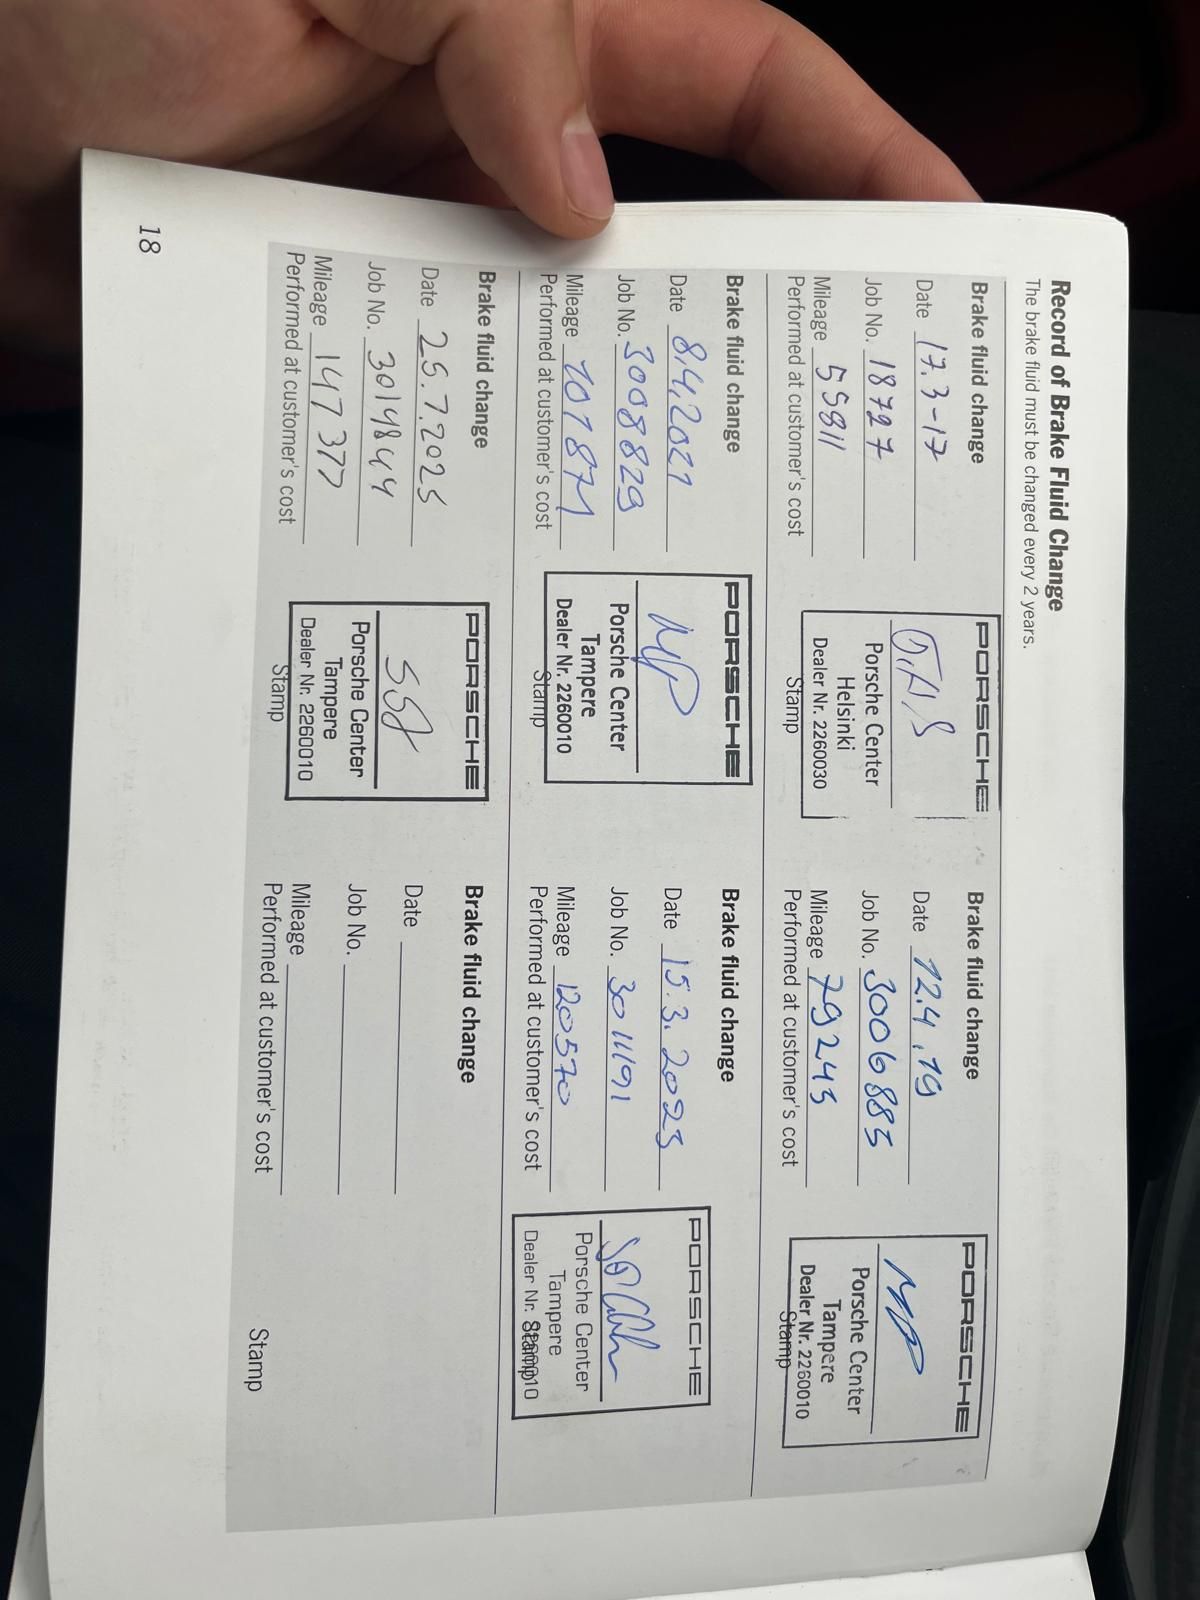 Record of Brake Fluid Change
The brake fluid must be changed every 2 years.
Brake fluid change
Date 17.3-17
Job No. 18727
Mileage 55811
Performed at customer's cost
PORSCHE
Porsche Center
Helsinki
Dealer Nr. 2260030
Stamp
Brake fluid change
Date 12.4.19
Job No. 3006885
Mileage 79245
Performed at customer's cost
PORSCHE
MP
Porsche Center
Tampere
Dealer Nr. 2260010
Stamp
Brake fluid change
Date 8.4.2021
Job No. 3008829
Mileage 101871
Performed at customer's cost
PORSCHE
MP
Porsche Center
Tampere
Dealer Nr. 2260010
Stamp
Brake fluid change
Date 15.3.2023
Job No. 3011191
Mileage 120570
Performed at customer's cost
PORSCHE
Porsche Center
Tampere
Dealer Nr. 2260010
Stamp
Brake fluid change
Date 25.7.2025
Job No. 3014844
Mileage 147377
Performed at customer's cost
PORSCHE
Porsche Center
Tampere
Dealer Nr. 2260010
Stamp
Brake fluid change
Date
Job No.
Mileage
Performed at customer's cost
Stamp
18